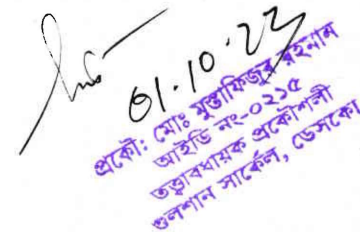 01.10.23
প্রকৌ: মোঃ মুস্তাফিজুর রহমান
আইডি নং-০২১৫
তত্ত্বাবধায়ক প্রকৌশলী
গুলশান সার্কেল, ডেসকো